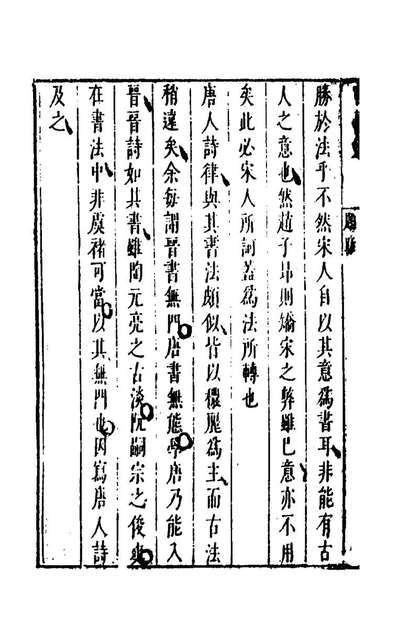 勝於法乎不然宋人自以其意為書耳非能有古
人之意也然趙子昂則矯宋之弊雖已意亦不用
矣此必宋人所訶蓋為法所轉也
唐人詩律與其書法頗似皆以穠麗為主而古法
稍遠矣余每謂晉書無門唐書無態學唐乃能入
晉晉詩如其書雖陶元亮之古淡阮嗣宗之俊爽
在書法中非虞褚可當以其無門也因寫唐人詩
及之